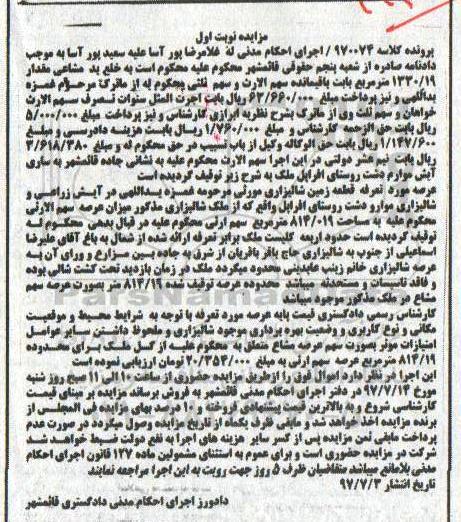 مزایده نوبت اول
پرونده کلاسه ۹۷۰۰۷۴/ اجرای احکام مدنی له غلامرضا پور آسا علیه سعید پور آسا به موجب
دادنامه صادره از شعبه پنجم حقوقی قائمشهر محکوم علیه محکوم است به خلع ید مشاعی مقدار
۱۳۳۰/۱۹ مترمربع بابت باقیمانده سهم الارث و سهم ثلثی محکوم له از ماترک مرحوم قمزه
یداللهی و نیز پرداخت مبلغ ۶۳/۶۶۰/۰۰۰ ریال بابت اجرت المثل سنوات تصرف سهم الارث
خواهان و سهم ثلث وی از ماترک بشرح نظریه ابرازی کارشناس و نیز پرداخت مبلغ ۵/۰۰۰/۰۰۰
ریال بابت حق الزحمه کارشناس و مبلغ ۱/۷۶۰/۰۰۰ ریال بابت هزینه دادرسی و مبلغ
۱/۱۴۷/۶۰۰ ریال بابت حق الوکاله وکیل از باب تسبیب در حق محکوم له و مبلغ ۳/۶۱۸/۳۸۰
ریال بابت نیم عشر دولتی در این اجرا سهم الارث محکوم علیه به نشانی جاده قائمشهر به ساری
آیش موارم دشت روستای افراپل ملک به شرح زیر توقیف گردیده است
عرصه مورد تعرفه قطعه زمین شالیزاری مورثی مرحومه قمزه یداللهی در آیش زراعی و
شالیزاری موارو دشت روستای افراپل واقع که از ملک شالیزاری مذکور میزان عرصه سهم الارثی
محکوم علیه به مساحت ۸۱۴/۰۱۹ مترمربع سهم ارثی محکوم علیه در قبال بدهی محکوم له
توقیف گردیده است حدود اربعه کلیست ملک برابر تعرفه ارائه شده از شمال به باغ آقای علیرضا
اسماعیلی از جنوب به شالیزاری حاج باقر باقریان از شرق به جاده بین مزارع و ورای آن به
عرصه شالیزاری خانم زینب عابدینی محدود میگردد ملک در زمان بازدید تحت کشت شالی بوده
و فاقد تاسیسات و مستحدثه میباشد محدوده عرصه توقیف شده ۸۱۴/۱۹ متر بصورت عرصه سهم
مشاع در ملک مذکور موجود میباشد
کارشناس رسمی دادگستری قیمت پایه عرصه مورد تعرفه با توجه به شرایط محیط و موقعیت
مکانی و نوع کاربری و وضعیت بهره برداری موجود شالیزاری و ملحوظ داشتن سایر عوامل
امتیازات موثر بصورت سهم عرصه مشاع متعلق به محکوم علیه از کل ملک برای محدوده
۸۱۴/۱۹ مترمربع عرصه سهم ارثی به مبلغ ۲۰/۳۵۴/۰۰۰ تومان ارزیابی نموده است
این اجرا در نظر دارد اموال فوق را ازطریق مزایده حضوری از ساعت ۱۰ الی ۱۱ صبح روز شنبه
مورخ ۹۷/۷/۱۴ در دفتر اجرای احکام مدنی قائمشهر به فروش برساند مزایده بر مبنای قیمت
کارشناسی شروع و به بالاترین قیمت پیشنهادی فروخته و ۱۰ درصد بهای مزایده فی المجلس از
برنده مزایده اخذ خواهد شد و مابقی ظرف یکماه از تاریخ مزایده وصول میگردد در صورت عدم
پرداخت مابقی ثمن مزایده پس از کسر سایر هزینه های اجرا به نفع دولت ضبط خواهد شد
شرکت در مزایده حضوری است و برای عموم به استثنای مشمولین ماده ۱۲۷ قانون اجرای احکام
مدنی بلامانع میباشد متقاضیان ظرف ۵ روز جهت رویت به این اجرا مراجعه نمایند
تاریخ انتشار ۹۷/۷/۳
دادورز اجرای احکام مدنی دادگستری قائمشهر